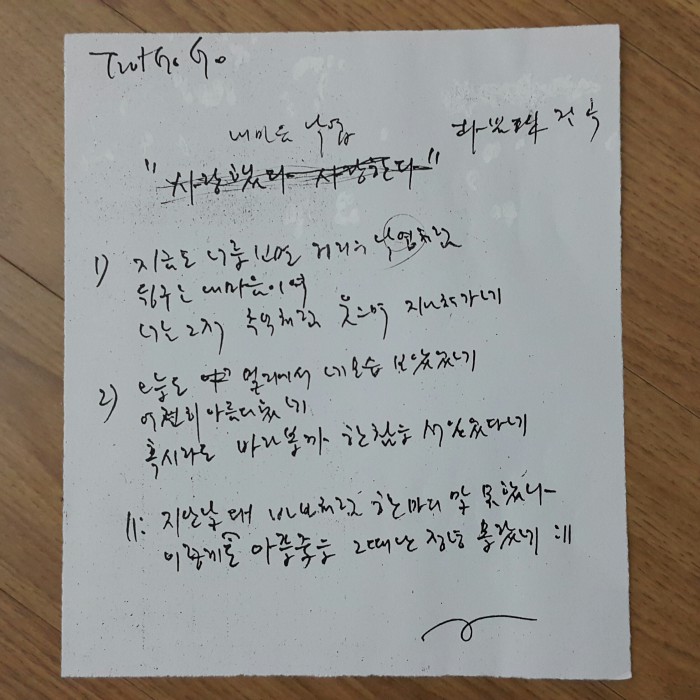 Trot Go Go
내마음 낙엽
"사랑했다 사랑한다"
1) 지금도 너를 보면 거리의 낙엽처럼
뒹구는 내마음이여
너는 그저 추억처럼 웃으며 지나쳐가네
2) 오늘도 멀리에서 네모습 보았었네
여전히 아름다웠네
혹시라도 바라볼까 한참을 서있었다네
||: 지난날 왜 바보처럼 한마디 말 못했나
이렇게 아플줄을 그때난 정녕 몰랐네 :||